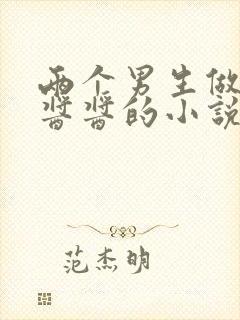 两个男生做
酱酱的小说
范杰明